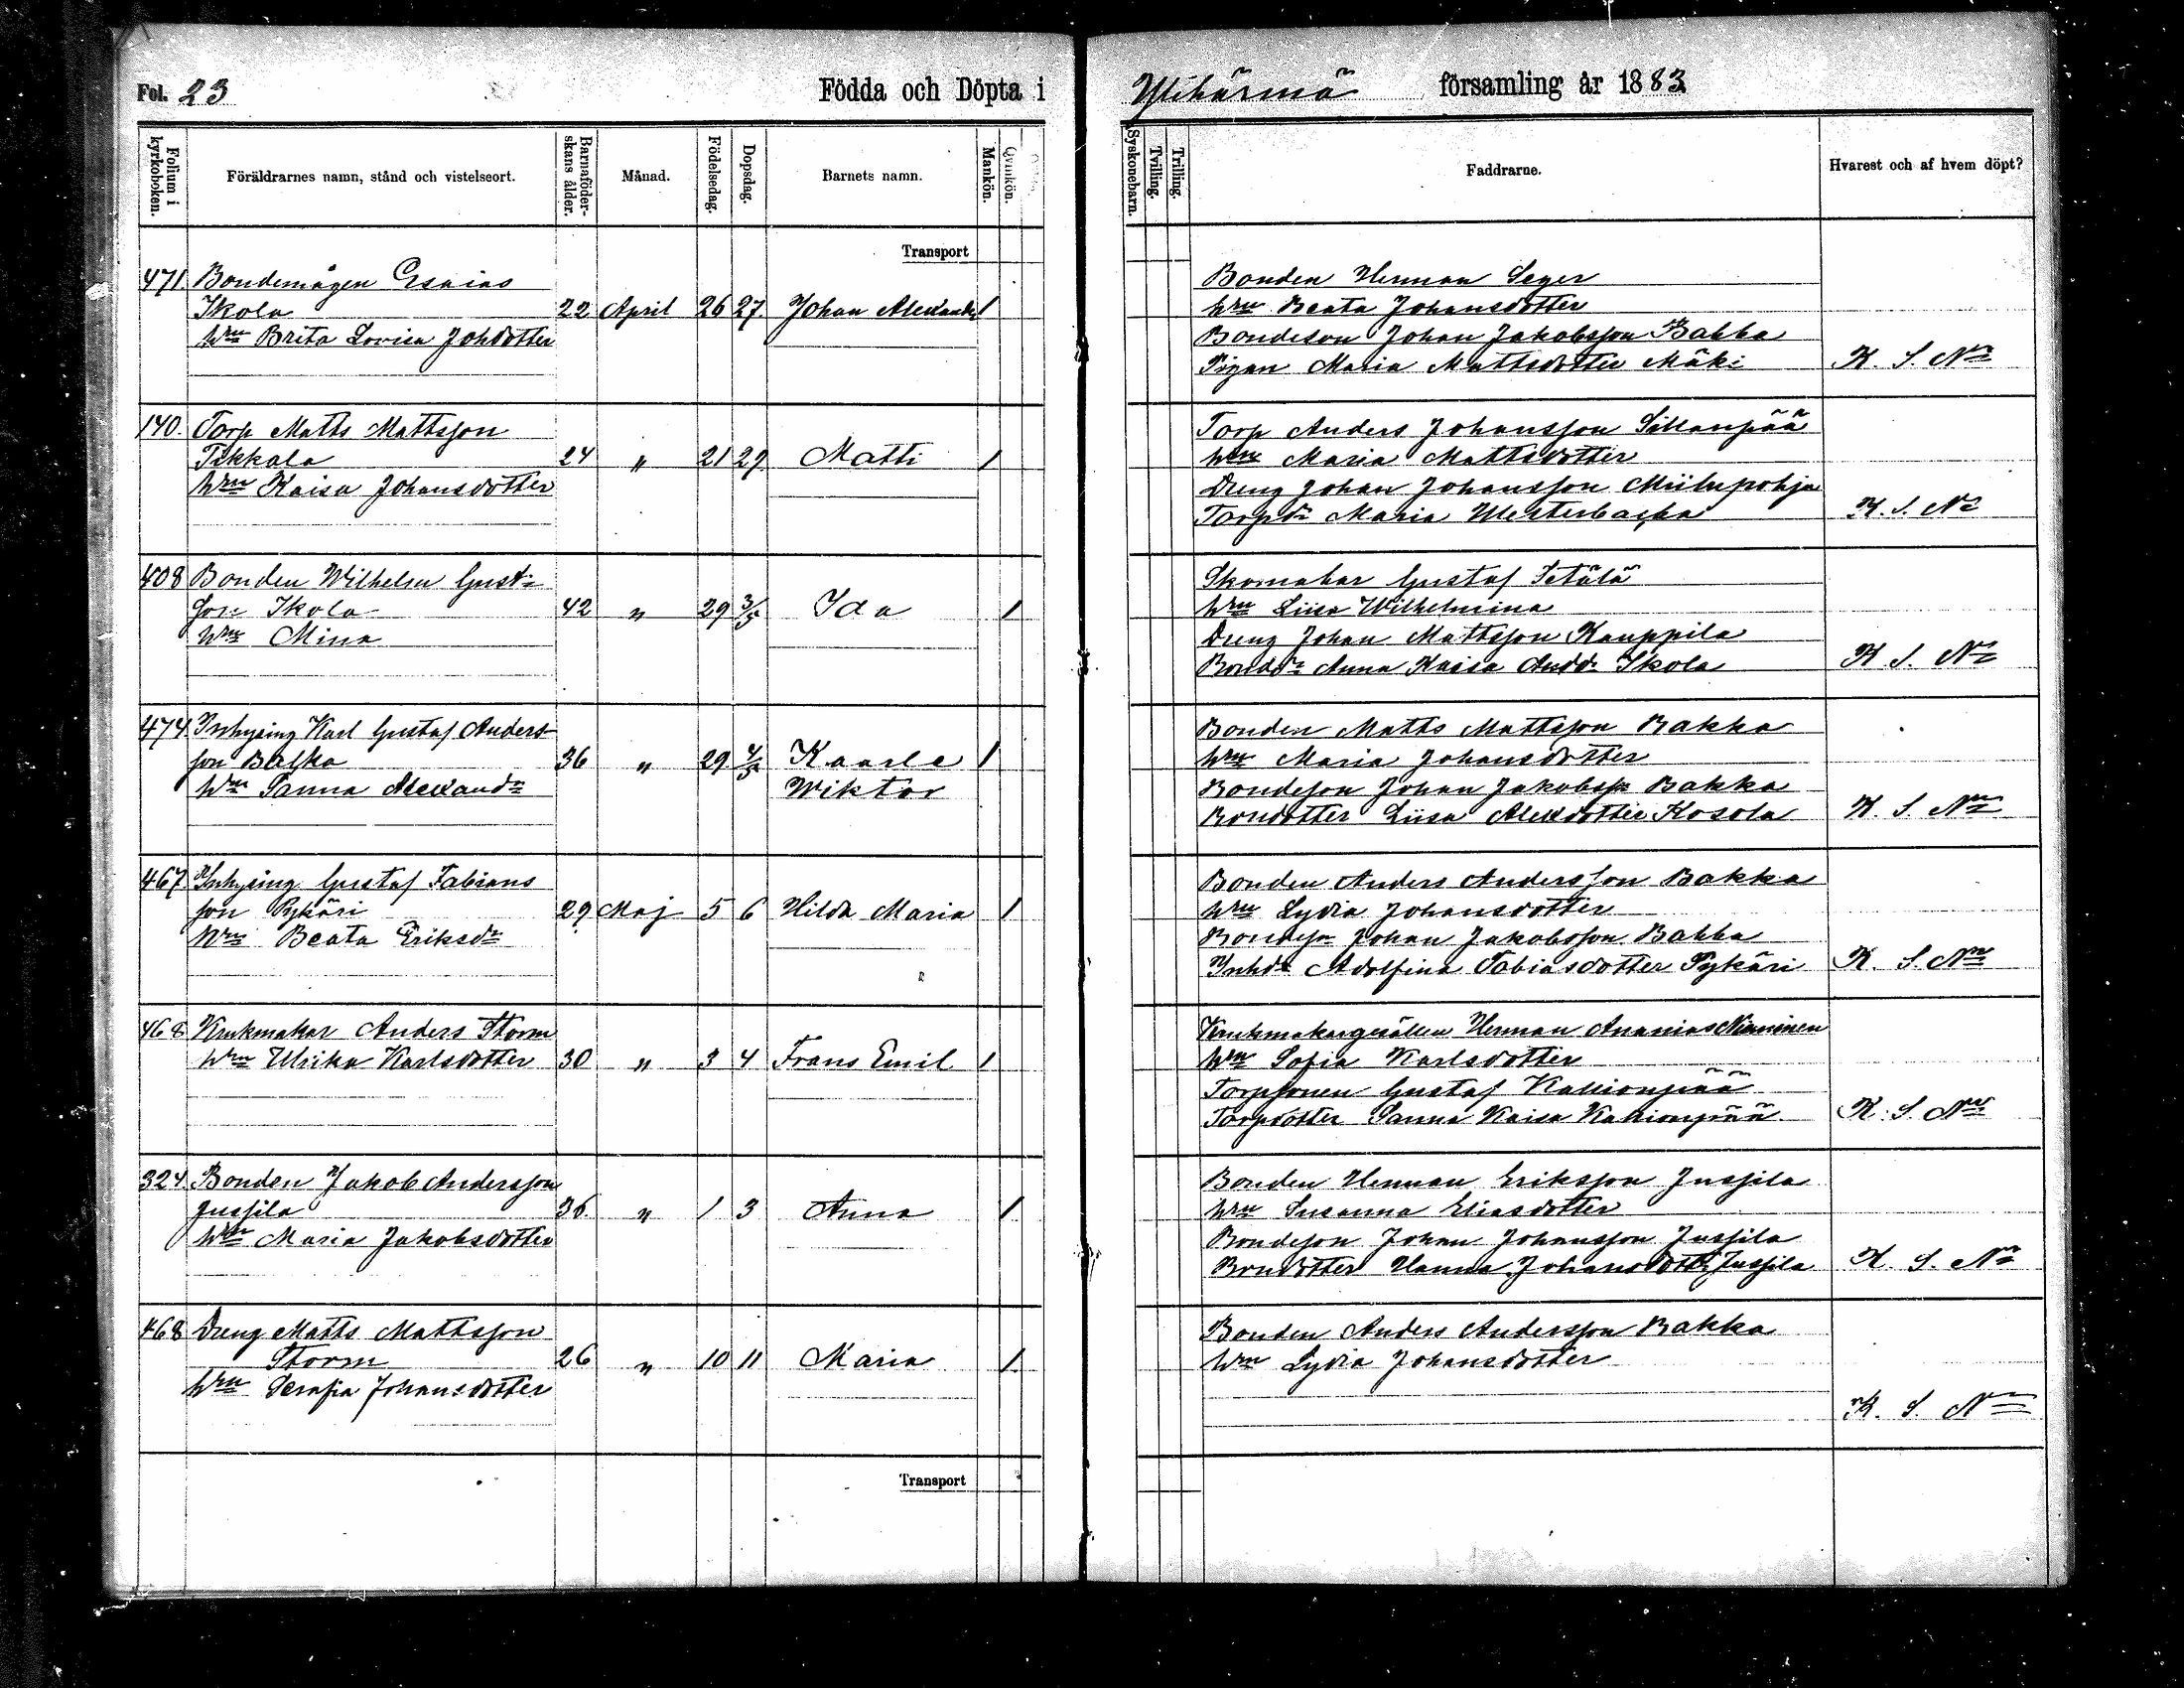 Fol. 23 Födda och Döpta i Ylihärmä församling år 1883
Folium i kyrkoboken.
Föräldrarnes namn, stånd och vistelseort.
Barnaföderskans ålder.
Månad.
Födelsedag.
Dopsdag.
Barnets namn.
Mankön.
Qvinkön.
Syskonebarn.
Tvilling.
Trilling.
Faddrarne.
Hvarest och af hvem döpt?
Transport
471. Bondemågen Esaias
Ikola 22 April 26 27. Johan Alexander 1
hru Brita Lovisa Johdotter
Bonden Herman Seger
hru Beata Johansdotter
Bondeson Johan Jakobsson Bakka
Pigan Maria Mattsdotter Mäki K. S. Nm
140. Torp Matts Mattsson
Pekkala 24 " 21 29 Matti 1
hru Kaisa Johansdotter
Torp Anders Johansson Sillanpää
hru Maria Mattsdotter
Dreng Johan Johansson Miilupohja
Torpdr Maria Westerbacka K. S. Nm
408 Bonden Wilhelm Gust
son Ikola 42 " 29 3/5 Ida 1
hru Mina
Skomakar Gustaf Setälä
hru Liisa Wilhelmina
Dreng Johan Mattsson Kauppila
Bonddr Anna Kaisa Anddr Ikola K S. Nm
474. Inhysing Karl Gustaf Anders
son Backa 36 " 29 4/5 Kaarle 1
hru Sanna Alexandr Wiktor
Bonden Matts Mattsson Bakka
hru Maria Johansdotter
Bondeson Johan Jakobss Bakka
Bondotter Liisa Alexdotter Kosola K. S. Nm
467. Inhysing Gustaf Fabians
son Pykäri 29 Maj 5 6 Hilda Maria 1
hru Beata Eriksdr
Bonden Anders Andersson Bakka
hru Lydia Johansdotter
Bondesn Johan Jakobsson Bakka
Inhdr Adolfina Fabiasdotter Pykäri K. S. Nm
468. Krukmakar Anders Storm
hru Ulrika Karlsdotter 30 " 3 4 Frans Emil 1
Krukmakargesällen Herman Ananias Nieminen
hru Sofia Karlsdotter
Torpsonen Gustaf Kallionpää
Torpdotter Sanna Kaisa Kallionpää K. S. Nm
324. Bonden Jakob Andersson
Jussila 36 " 1 3 Anna 1
hru Maria Jakobsdotter
Bonden Herman Eriksson Jussila
hru Susanna Eliasdotter
Bondeson Johan Johansson Jussila
Bondotter Hanna Johansdottr Jussila K. S. Nm
468 Dreng Matts Mattsson
Storm 26 " 10 11 Maria 1
hru Serafia Johansdotter
Bonden Anders Andersson Bakka
hru Lydia Johansdotter
K. S. Nm
Transport